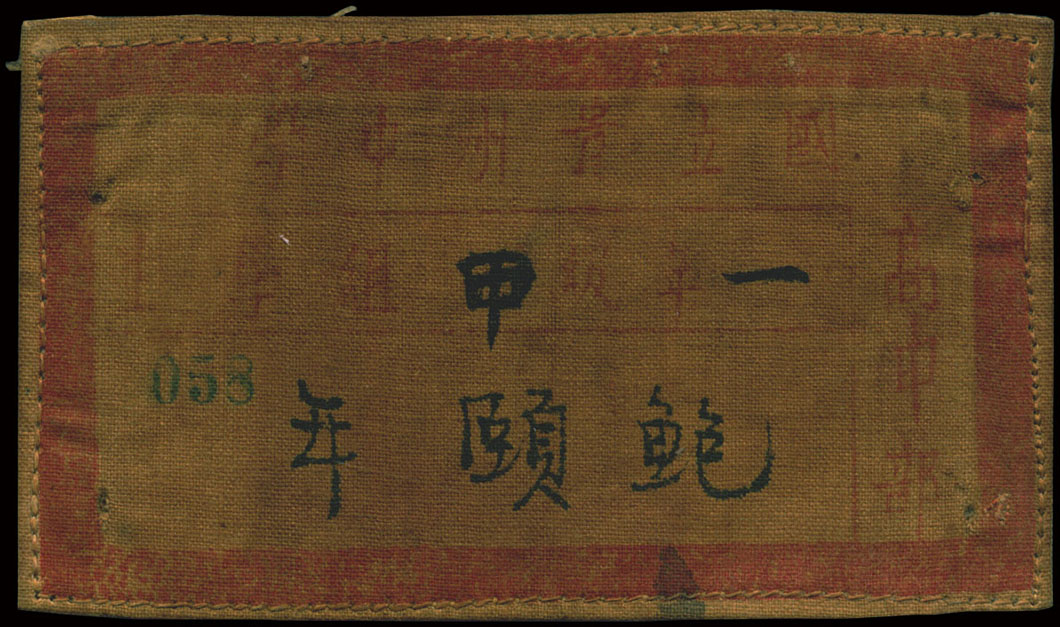 國立貴州中學
高中部
一年級甲組學生
鮑頤年
058